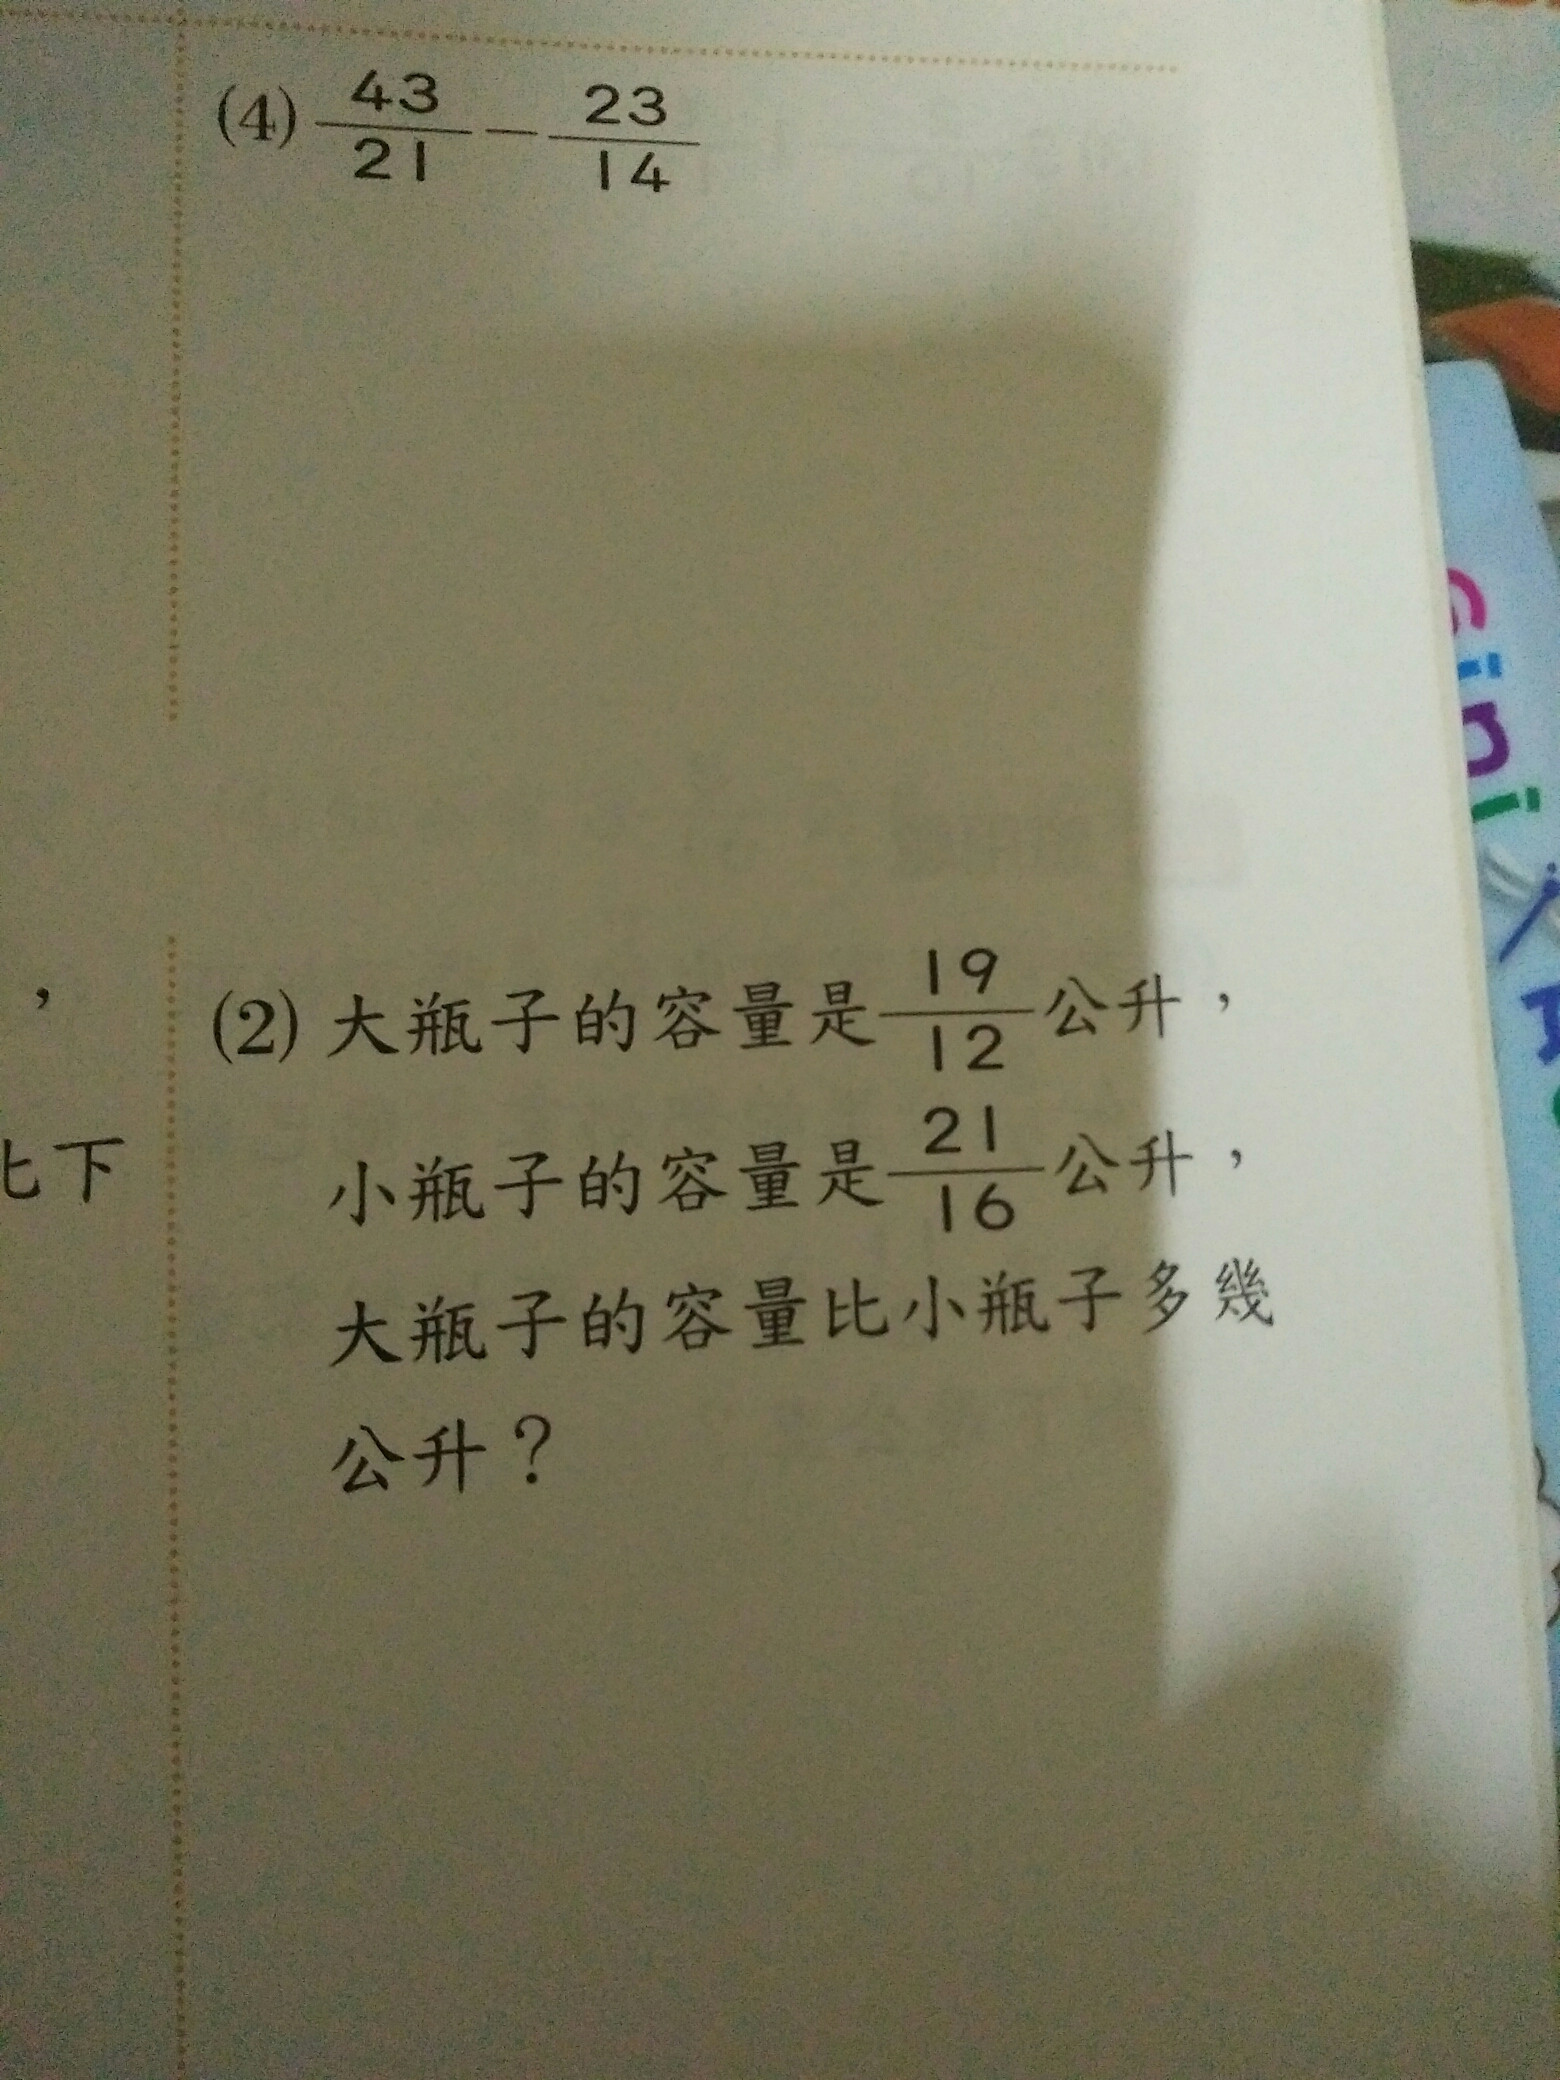 (4) 43/21 − 23/14
，
(2) 大瓶子的容量是19/12公升，
比下
小瓶子的容量是21/16公升，
大瓶子的容量比小瓶子多幾
公升？